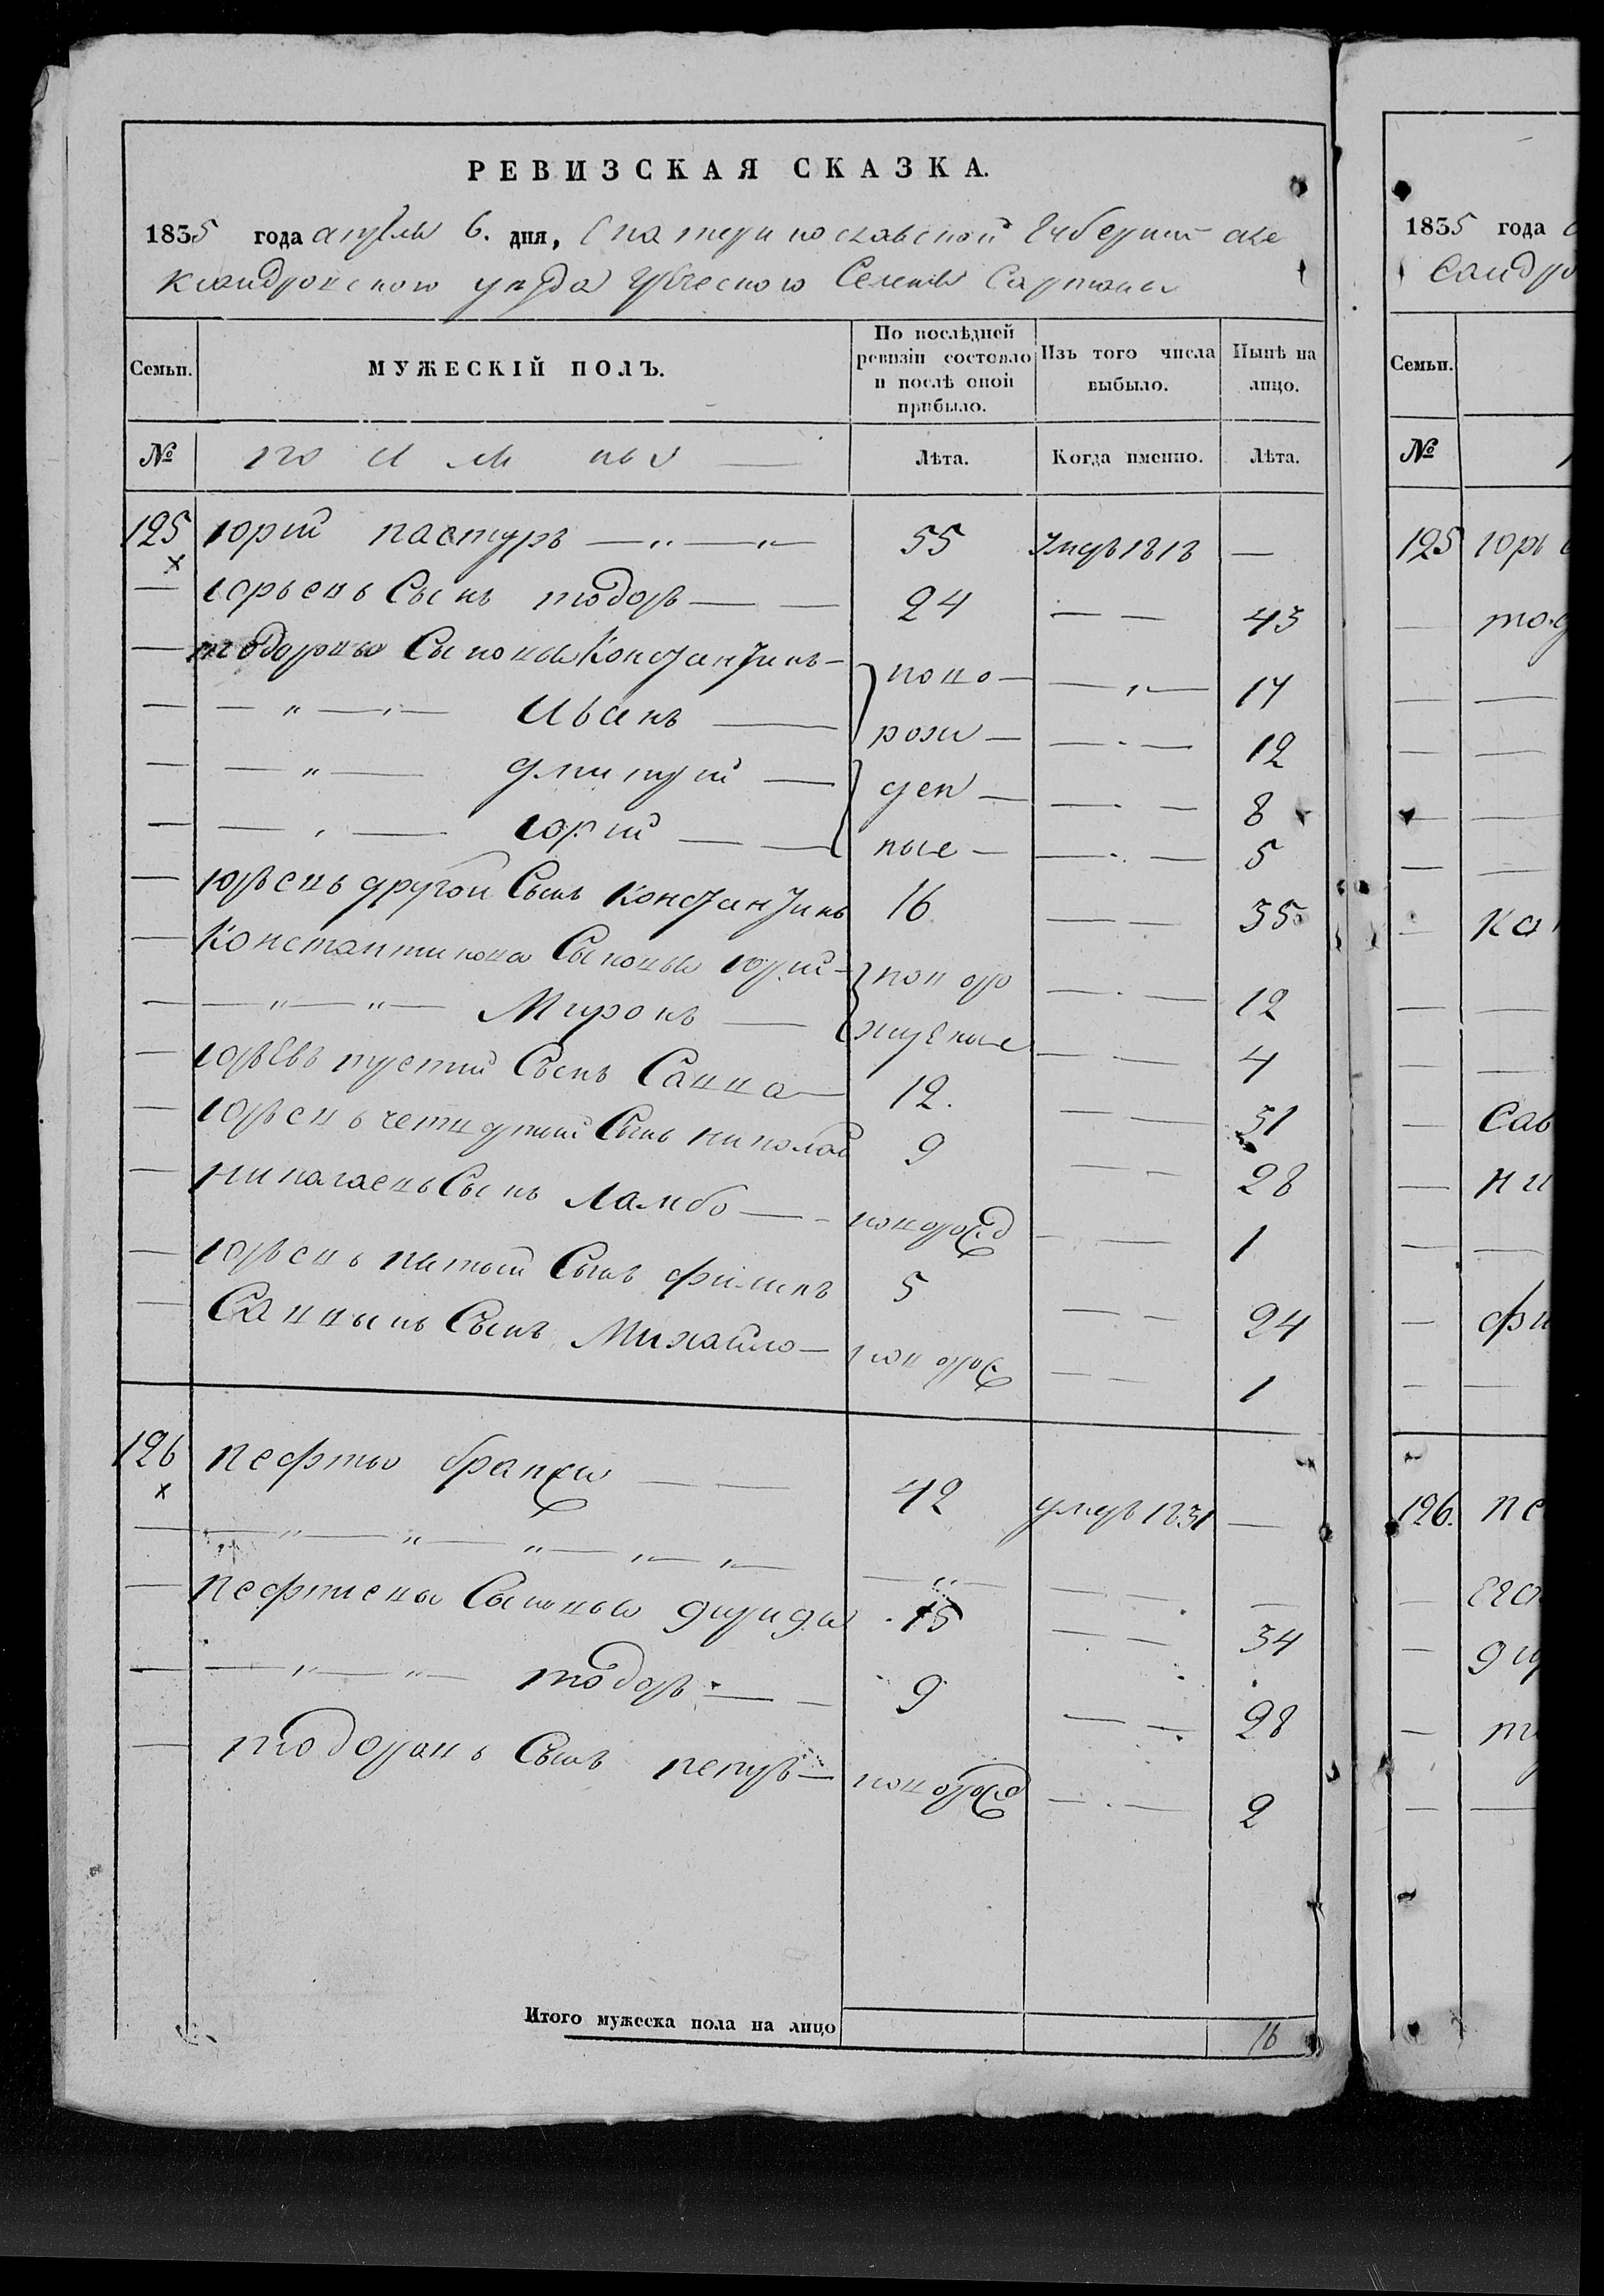 РЕВИЗСКАЯ СКАЗКА.
1835 года апреля 6. дня, Екатеринославской Губернии але
ксандровского уезда Греческого Селения Сартаны
Семьи. МУЖЕСКІЙ ПОЛЪ. По послѣдней ревизіи состояло и послѣ оной прибыло. Изъ того числа выбыло. Нынѣ на лицо.
№ по И м ны Лѣта. Когда именно. Лѣта.
125 юрий пастуръ 55 Умръ 1818 —
— юрьевъ Сынъ тодоръ 24 — — 43
— тодоровы Сыновья Константинъ ново 17
— Иванъ рож 12
— дмитрий ден 8
— юрий ные 5
— юрьевъ другой Сынъ Константинъ 16 — — 35
— Константинова Сыновья юрий новоро 12
— Миронъ жденые 4
— юрьевъ третий Сынъ Савва 12. — — 31
— юрьевъ четвертый Сынъ николай 9 — — 28
— николаевъ Сынъ Ламбо новорожд 1
— юрьевъ пятый Сынъ филипъ 5 — — 24
— Саввынъ Сынъ Михайло новорож 1
126 пефты 42 умръ 1831 —
— пефтиевы Сыновья 15 — — 34
— тодоръ 9 — — 28
— тодоровъ Сынъ петръ новорожд 2
Итого мужеска пола на лицо 16
1835 года
Сандро
Семьи.
№
125 юрь
тод
Ка
Сав
ни
фи
126. пе